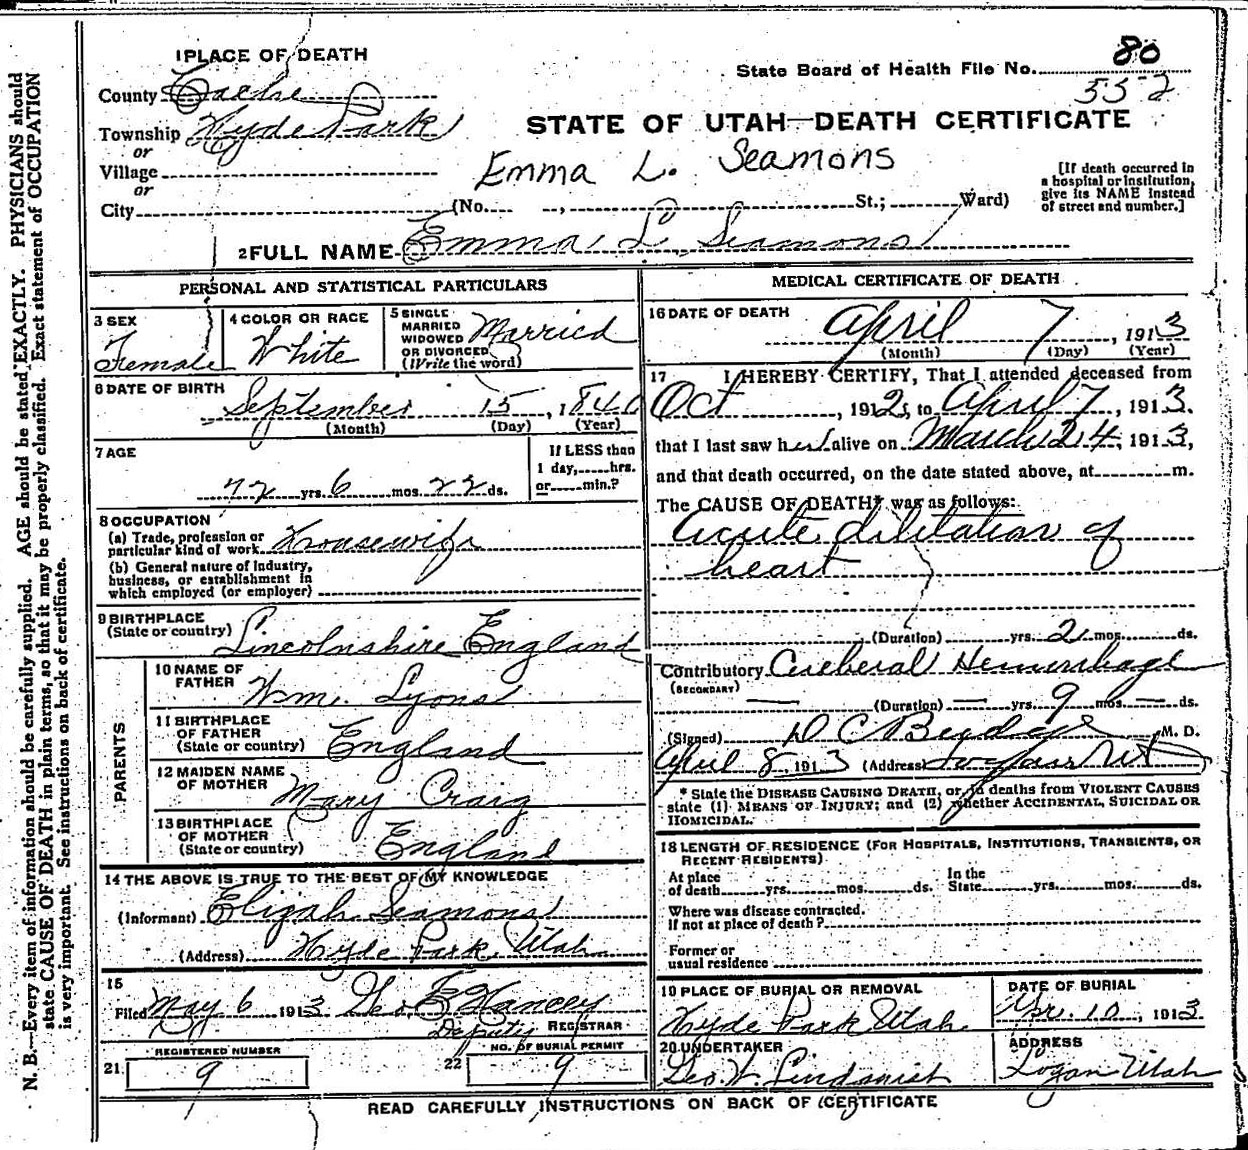 1 PLACE OF DEATH
County Cache
Township Hyde Park
or
Village
or
City (No. , St.; Ward)
State Board of Health File No. 80
552
STATE OF UTAH—DEATH CERTIFICATE
Emma L. Seamons
[If death occurred in
a hospital or institution,
give its NAME instead
of street and number.]
2 FULL NAME Emma L. Seamons
PERSONAL AND STATISTICAL PARTICULARS
3 SEX
Female
4 COLOR OR RACE
White
5 SINGLE
MARRIED
WIDOWED
OR DIVORCED
(Write the word)
Married
6 DATE OF BIRTH
September 15, 1840
(Month) (Day) (Year)
7 AGE
72 yrs. 6 mos. 22 ds.
If LESS than
1 day, hrs.
or min.?
8 OCCUPATION
(a) Trade, profession or
particular kind of work Housewife
(b) General nature of Industry,
business, or establishment in
which employed (or employer)
9 BIRTHPLACE
(State or country) Lincolnshire England
PARENTS
10 NAME OF
FATHER
Wm. Lyons
11 BIRTHPLACE
OF FATHER
(State or country) England
12 MAIDEN NAME
OF MOTHER
Mary Craig
13 BIRTHPLACE
OF MOTHER
(State or country) England
14 THE ABOVE IS TRUE TO THE BEST OF MY KNOWLEDGE
(Informant) Elizah Seamons
(Address) Hyde Park, Utah
15
Filed May 6 1913 Geo. E Hancey
Deputy REGISTRAR
REGISTERED NUMBER
21. 9
NO. OF BURIAL PERMIT
22 9
MEDICAL CERTIFICATE OF DEATH
16 DATE OF DEATH
April 7, 1913
(Month) (Day) (Year)
17 I HEREBY CERTIFY, That I attended deceased from
Oct, 1912, to April 7, 1913.
that I last saw her alive on March 24, 1913,
and that death occurred, on the date stated above, at m.
The CAUSE OF DEATH* was as follows:
Acute dilitation of
heart
(Duration) yrs. 2 mos. ds.
Contributory Cereberal Hemmrhage
(SECONDARY)
— (Duration) — yrs. 9 mos — ds.
(Signed) D C Budge M. D.
April 8 1913 (Address) Logan Ut
* State the DISEASE CAUSING DEATH, or, in deaths from VIOLENT CAUSES
state (1) MEANS OF INJURY; and (2) whether ACCIDENTAL, SUICIDAL OR
HOMICIDAL.
18 LENGTH OF RESIDENCE (FOR HOSPITALS, INSTITUTIONS, TRANSIENTS, OR
RECENT RESIDENTS)
At place
of death yrs. mos. ds.
In the
State yrs. mos. ds.
Where was disease contracted.
If not at place of death?
Former or
usual residence
19 PLACE OF BURIAL OR REMOVAL
Hyde Park Utah
DATE OF BURIAL
Apr. 10, 1913
20 UNDERTAKER
Geo. W. Lindquist
ADDRESS
Logan Utah
READ CAREFULLY INSTRUCTIONS ON BACK OF CERTIFICATE
N. B.—Every item of information should be carefully supplied. AGE should be stated EXACTLY. PHYSICIANS should
state CAUSE OF DEATH in plain terms, so that it may be properly classified. Exact statement of OCCUPATION
is very important. See instructions on back of certificate.